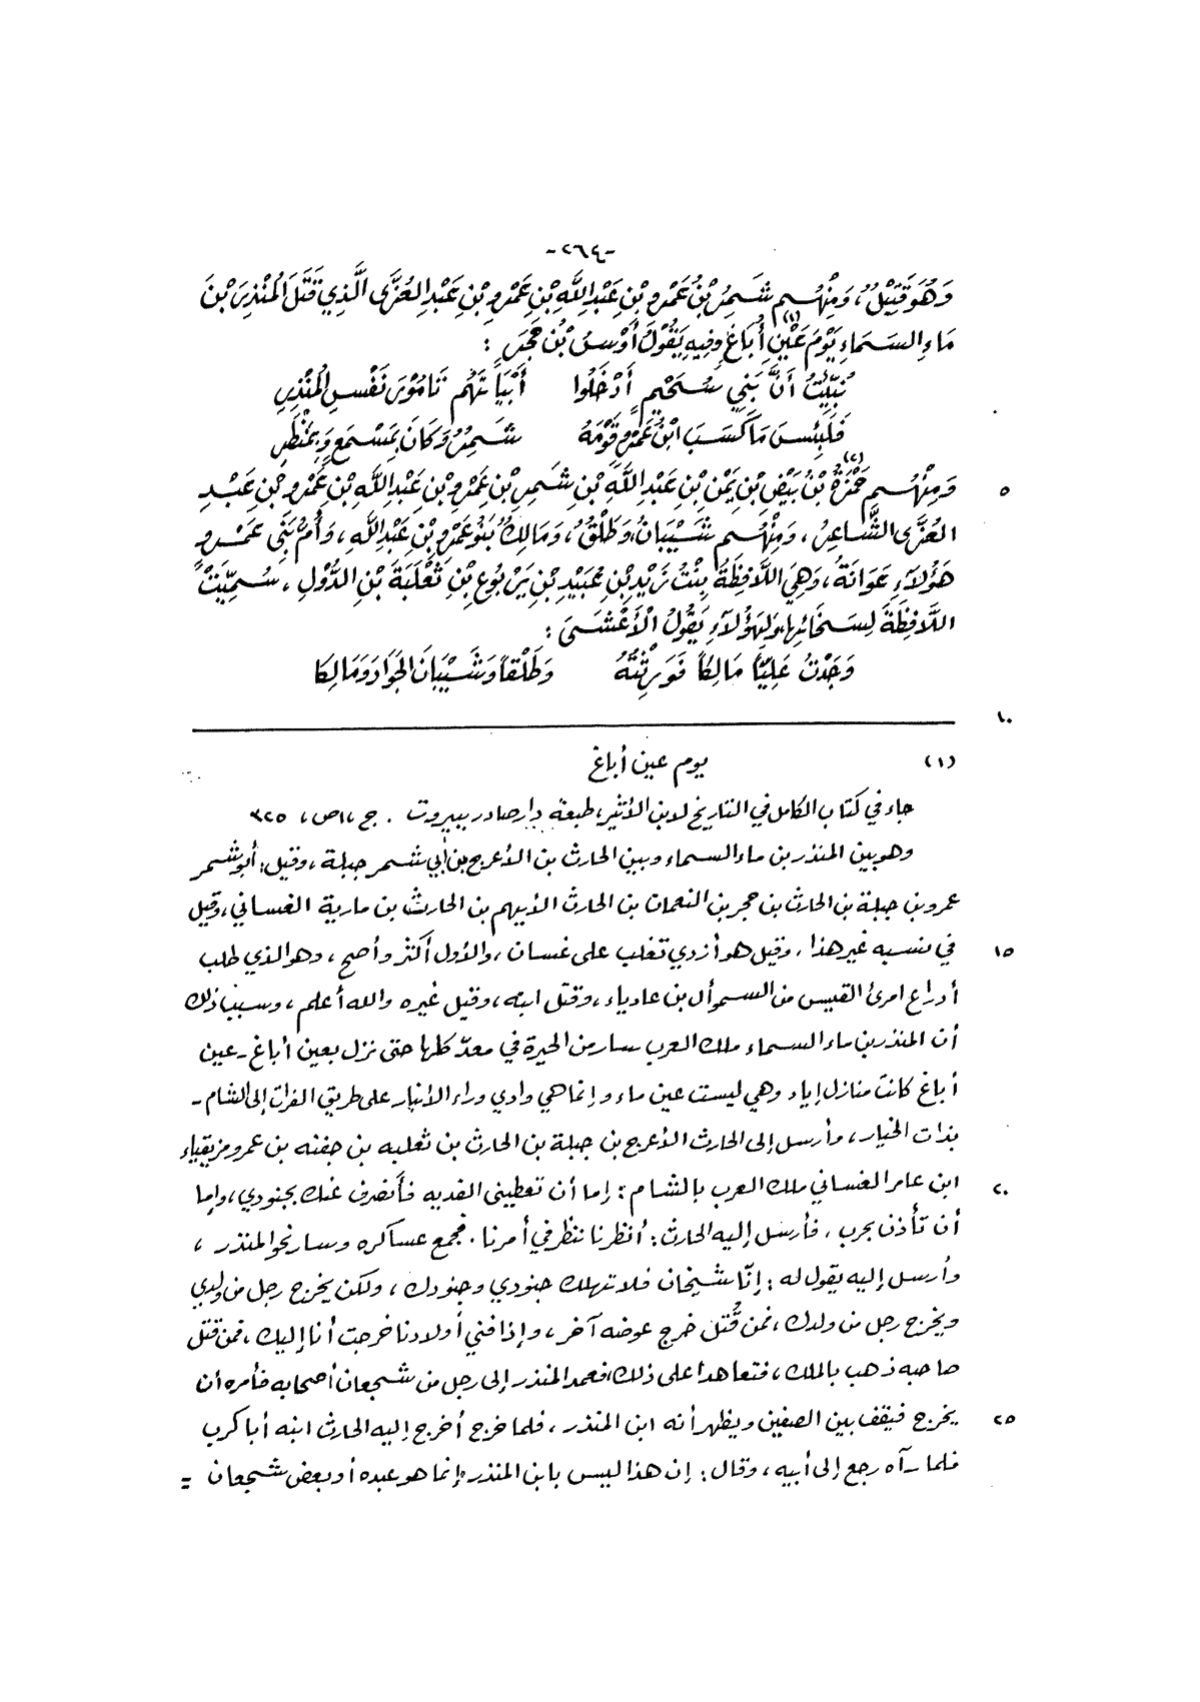 -٢٦٤-
وَهُوَ قَتِيْلٌ، وَمِنْهُم شَمِرُ بْنُ عَمْرِو بْنِ عَبْدِ اللَّهِ بْنِ عَمْرِو بْنِ عَبْدِ العُزَّى الَّذِي قَتَلَ الْمُنْذِرَ بْنَ
مَاءِ السَمَاءِ يَوْمَ عَيْنِ أُبَاغَ (١) وفِيهِ يَقُوْلُ أَوْسُ بْنُ حَجَرٍ :
نُبِّئْتُ أَنَّ بَنِي سُحَيْمٍ أَدْخَلُوا أَبْيَاتَهُم تَامُوْرَ نَفْسِ الْمُنْذِرِ
فَلَبِئْسَ مَا كَسَبَ ابْنُ عَمْرٍو قَوْمَهُ شَمِرٌ وَكَانَ بِمَسْمَعٍ وَبِمَنْظَرِ
٥ وَمِنْهُم حَمْزَةُ (٢) بْنُ بَيْضِ بْنِ يَمْنِ بْنِ عَبْدِ اللَّهِ بْنِ شَمِرِ بْنِ عَمْرِو بْنِ عَبْدِ اللَّهِ بْنِ عَمْرِو بْنِ عَبْدِ
العُزَّى الشَّاعِرُ، وَمِنْهُم شَيْبَانُ، وَطَلْقٌ، وَمَالِكٌ بَنُو عَمْرِو بْنِ عَبْدِ اللَّهِ، وَأُمُّ بَنِي عَمْرٍو
هَؤُلَاءِ عَوَانَةُ، وَهِيَ اللَّافِظَةُ بِنْتُ زَيْدِ بْنِ عُبَيْدِ بْنِ يَرْبُوعِ بْنِ ثَعْلَبَةَ بْنِ الدُّوْلِ، سُمِّيَتْ
اللَّافِظَةَ لِسَخَائِهَا، وَلِهَؤُلَاءِ يَقُوْلُ الْأَعْشَى :
وَجَدْتُ عَلِيّاً مَالِكاً فَوَرِثْتَهُ وَطَلْقاً وَشَيْبَانَ الْجَوَادَ وَمَالِكَا
١٠
(١) يوم عين أباغ
جاء في كتاب الكامل في التاريخ لابن الأثير، طبعة دار صادر بيروت . ج ١، ص، ٣٢٥
وهو بين المنذر بن ماء السماء وبين الحارث بن الأعرج بن أبي شمر جبلة، وقيل: أبو شمر
عمرو بن جبلة بن الحارث بن حجر بن النعمان بن الحارث الأيهم بن الحارث بن مارية الغساني، وقيل
١٥ في نسبه غير هذا، وقيل هو أزدي تغلب على غسان، والأول أكثر وأصح، وهو الذي طلب
أدراع امرئ القيس من السموأل بن عادياء، وقتل ابنه، وقيل غيره والله أعلم، وسبب ذلك
أن المنذر بن ماء السماء ملك العرب سار من الحيرة في معدّ كلها حتى نزل بعين أباغ - عين
أباغ كانت منازل إياد وهي ليست عين ماء وإنما هي وادي وراء الأنبار على طريق الفرات إلى الشام -
بذات الخيار، وأرسل إلى الحارث الأعرج بن جبلة بن الحارث بن ثعلبه بن جفنه بن عمرو مزيقياء
٢٠ ابن عامر الغساني ملك العرب بالشام: إما أن تعطيني الفديه فأنصرف عنك بجنودي، وإما
أن تأذن بحرب، فأرسل إليه الحارث: أنظرنا ننظر في أمرنا. فجمع عساكره وسار نحو المنذر،
وأرسل إليه يقول له: إنّا شيخان فلا تهلك جنودي وجنودك، ولكن يخرج رجل من ولدي
ويخرج رجل من ولدك، فمن قُتل خرج عوضه آخر، وإذا فني أولادنا خرجت أنا إليك، فمن قتل
صاحبه ذهب بالملك، فتعاهدا على ذلك، فعمد المنذر إلى رجل من شجعان أصحابه فأمره أن
٢٥ يخرج فيقف بين الصفين ويظهر أنه ابن المنذر، فلما خرج أخرج إليه الحارث ابنه أبا كرب
فلما رآه رجع إلى أبيه، وقال: إن هذا ليس بابن المنذر إنما هو عبده أو بعض شجعان =